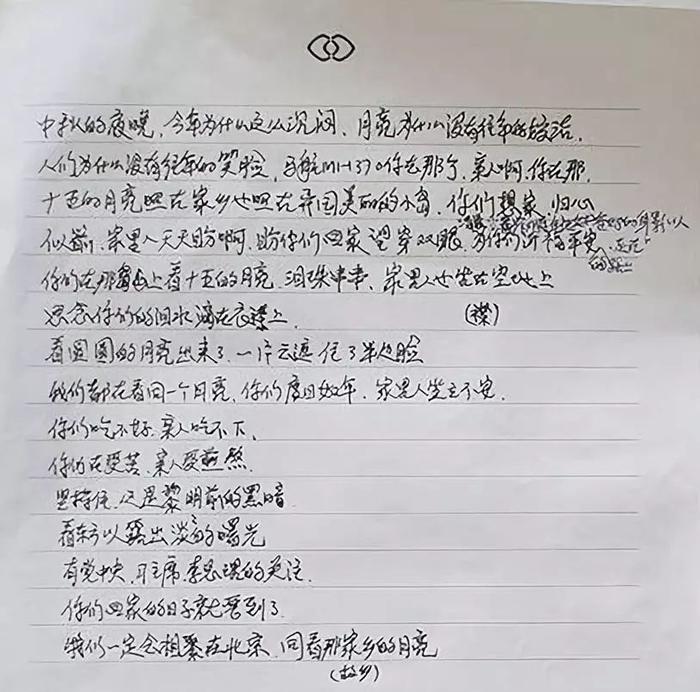 中秋的夜晚，今年为什么这么沉闷、月亮为什么没有往年的皎洁、
人们为什么没有往年的笑脸，马航MH370你在那了，亲人啊，你在那、
十五的月亮照在家乡也照在异国美丽的小岛，你们想家 归心
似箭，家里人天天盼啊，盼你们回家望穿双眼，为你们祈福平安，
你们在那岛上看十五的月亮，泪珠串串，家里人也坐在空地上
思念你们的泪水滴在衣襟上 （襟）
看圆圆的月亮出来了，一片云遮住了半边脸
我们都在看同一个月亮，你们度日如年，家里人坐立不安，
你们吃不好，亲人吃不下，
你们在受苦，亲人受煎熬
坚持住，这是黎明前的黑暗
看东方以露出淡淡的曙光
有党中央，习主席，李总理的关注，
你们回家的日子就要到了
我们一定会相聚在北京，同看那家乡的月亮
（故乡）